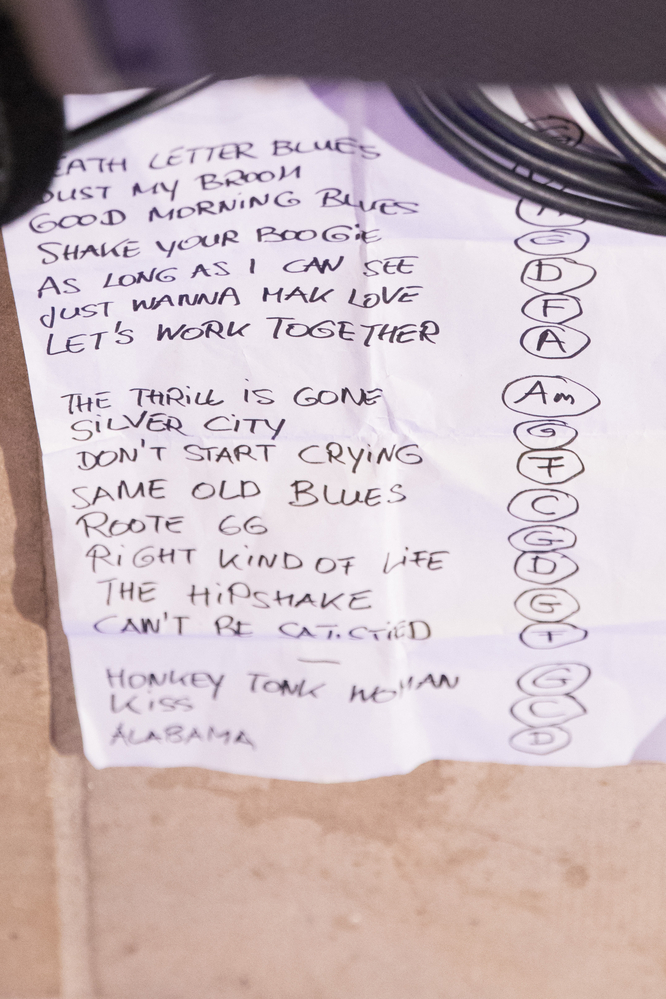 EATH LETTER BLUES G
DUST MY BROOM
GOOD MORNING BLUES A
SHAKE YOUR BOOGIE G
AS LONG AS I CAN SEE D
JUST WANNA MAK LOVE F
LET'S WORK TOGETHER A
THE THRILL IS GONE Am
SILVER CITY G
DON'T START CRYING F
SAME OLD BLUES C
ROOTE 66 G
RIGHT KIND OF LIFE D
THE HIPSHAKE G
CAN'T BE F
—
HONKEY TONK WOMAN G
KISS C
ALABAMA D